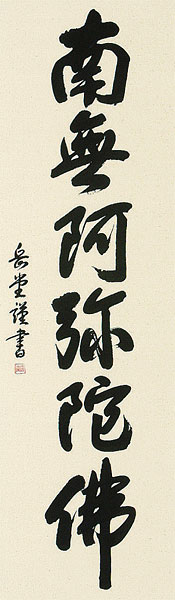 南無阿弥陀佛
岳堂謹書